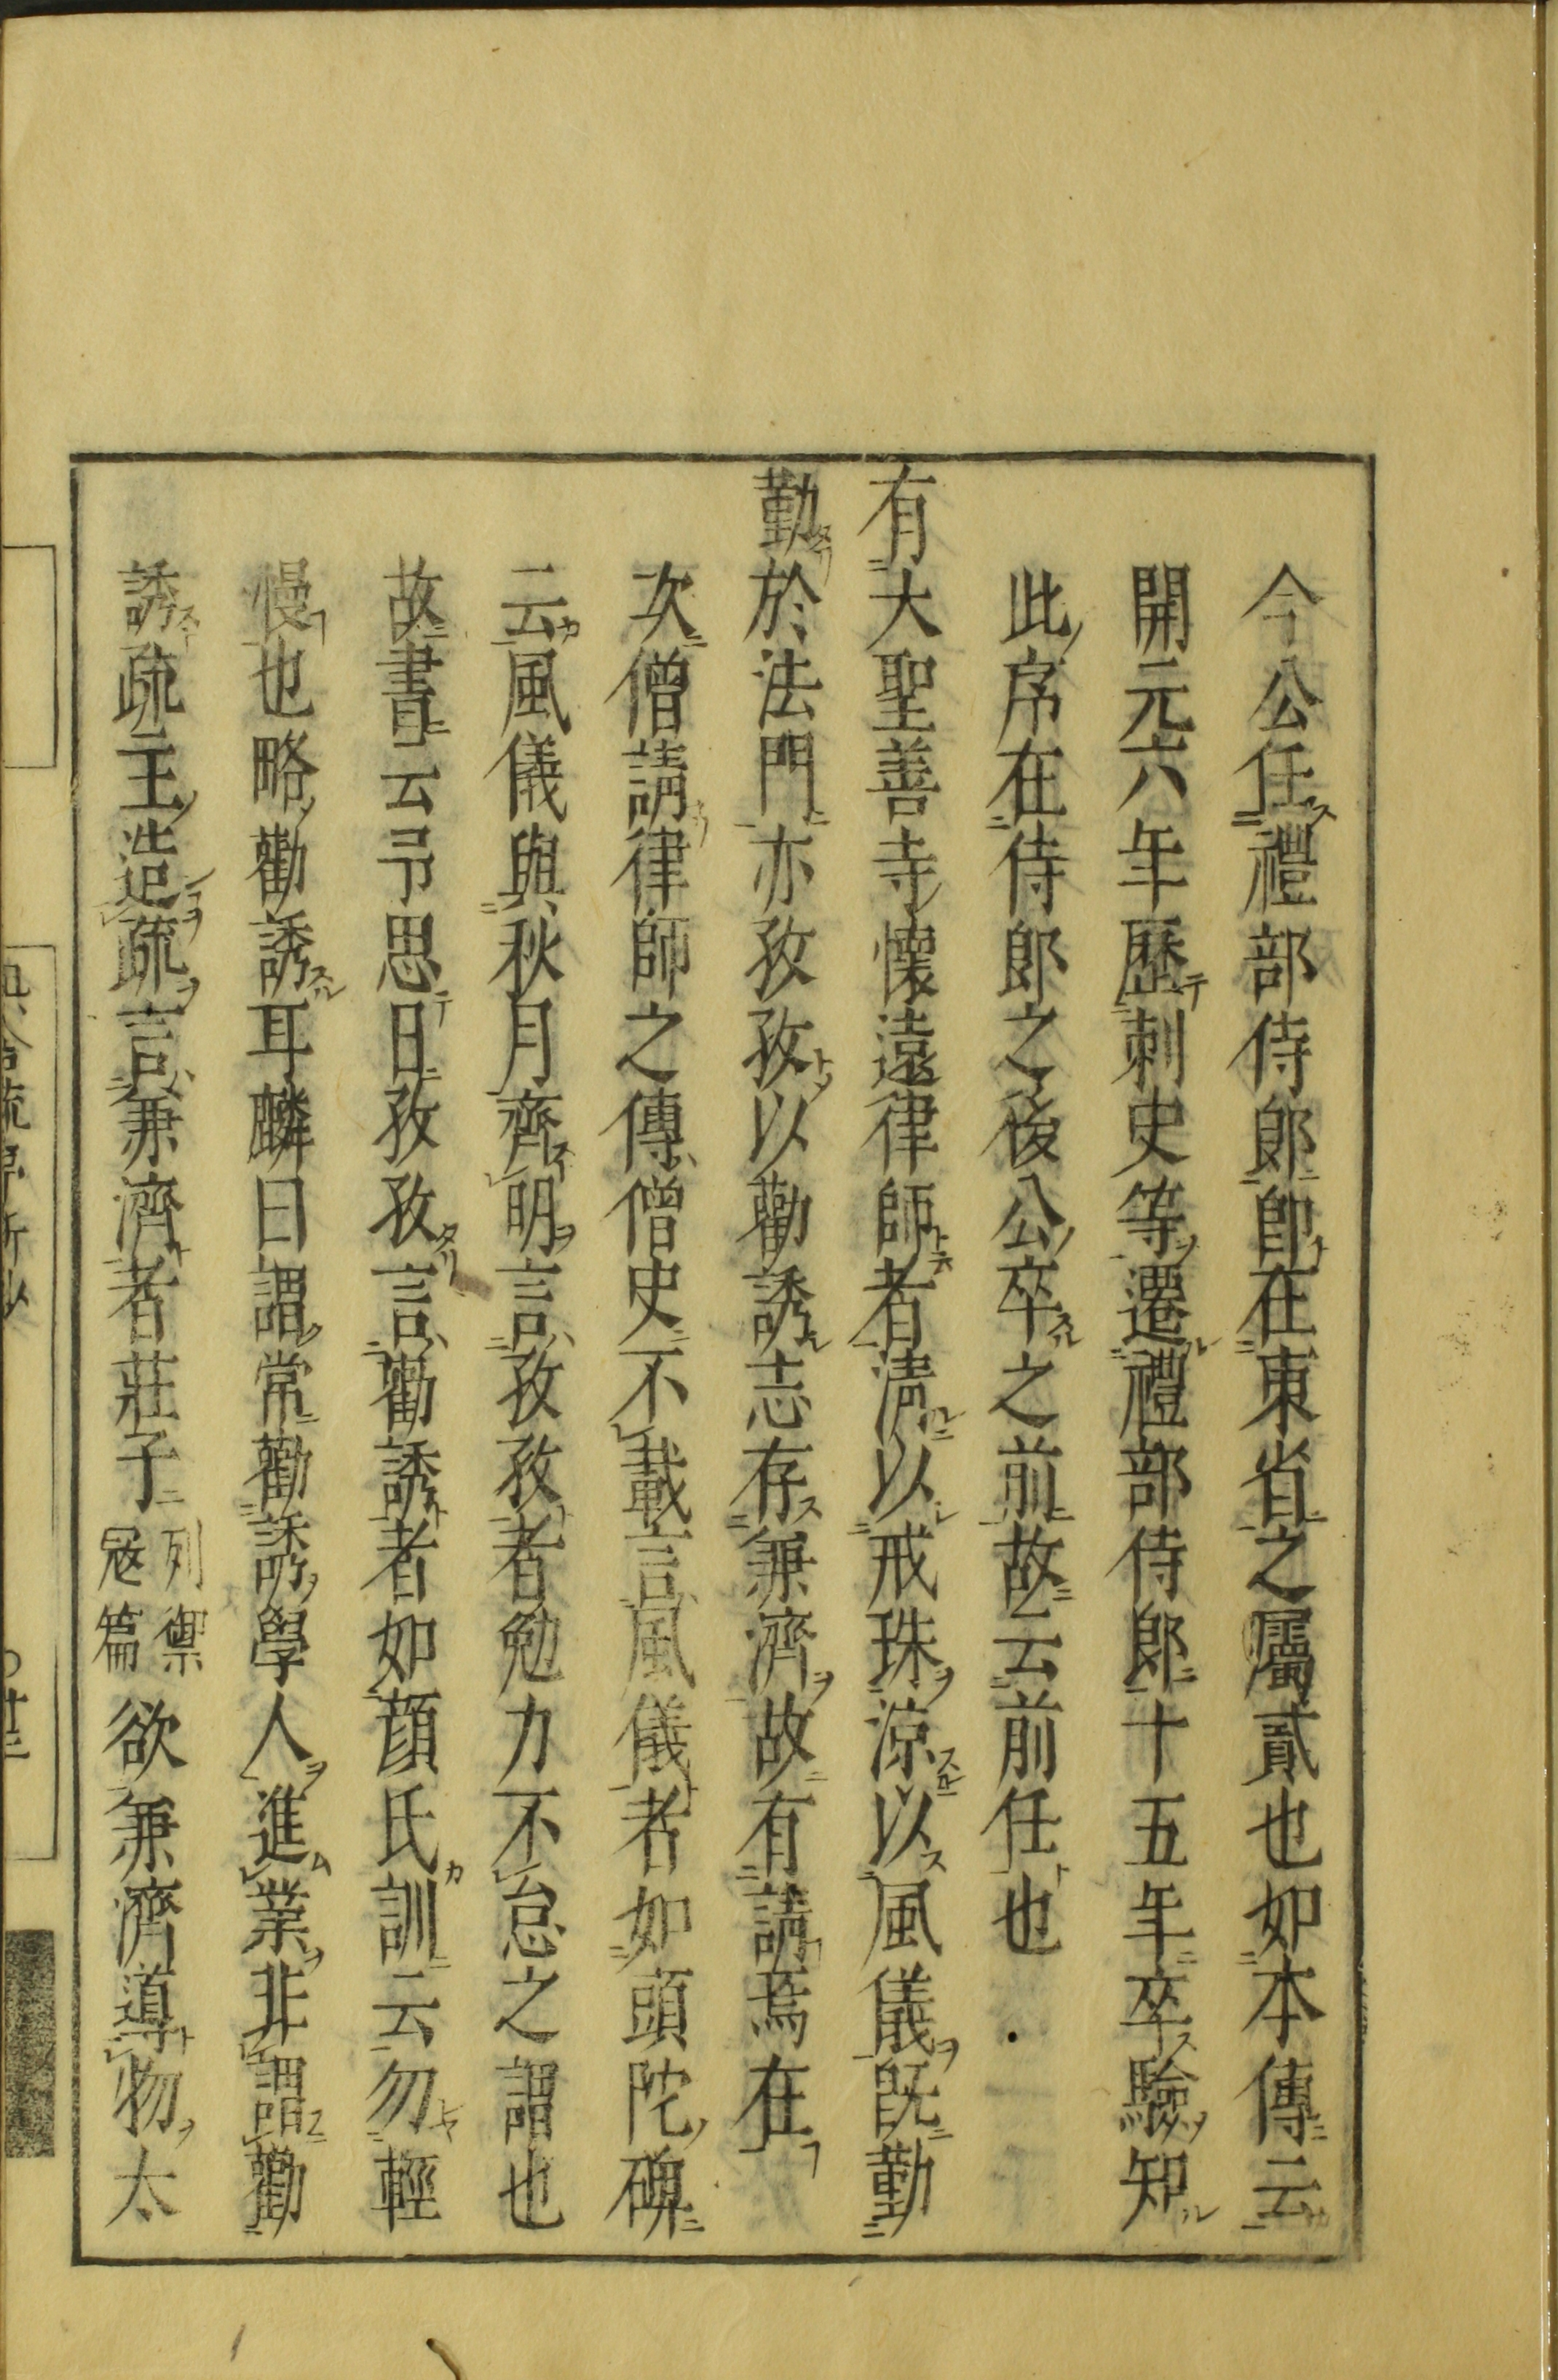 今公任禮部侍郎即在東省之屬貳也如本傳云
開元六年歷刺史等遷禮部侍郎十五年卒驗知
此序在侍郎之後公卒之前故云前任也
有大聖善寺懷遠律師者淸以戒珠涼以風儀既勤
勤於法門亦孜孜以勸誘志存兼濟故有請焉在
次僧請律師之傳僧史不載言風儀者如頭陀碑
云風儀與秋月齊明言孜孜者勉力不怠之謂也
故書云予思日孜孜言勸誘者如顔氏訓云勿輕
慢也略勸誘耳麟曰謂常勸誘學人進業非謂勸
誘疏主造疏言兼濟者莊子列禦寇篇欲兼濟導物太